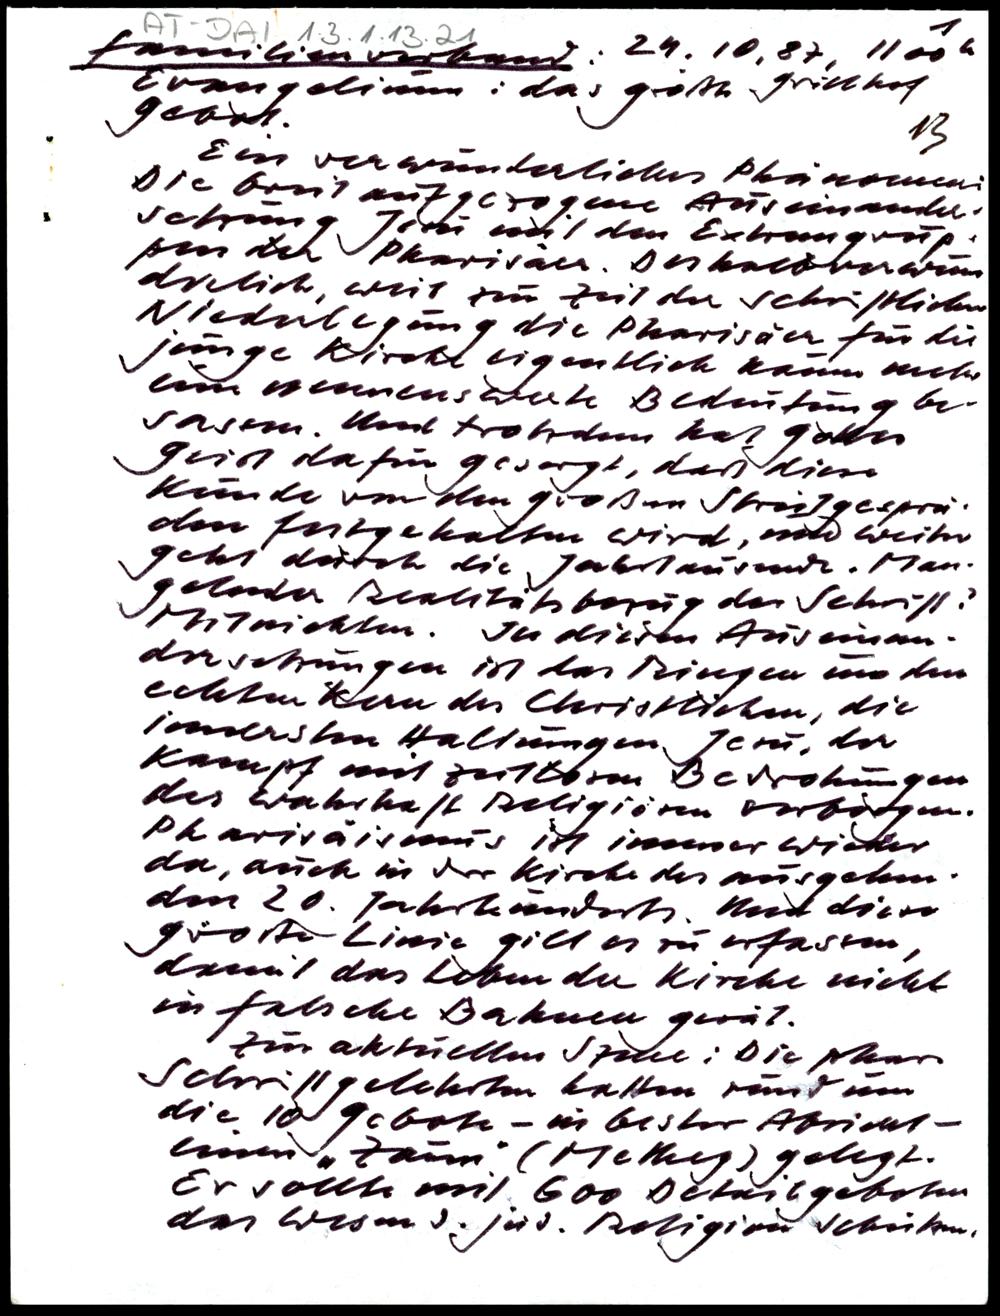 AT-DAI 1.3.1.13.21
1
Familienverband: 24. 10. 87, 11 00 h
Evangelium: das größte Grillhof
Gebot.
13
Ein verwunderliches Phänomen:
Die breit aufgezogene Auseinander-
setzung Jesu mit den Extremgrup-
pen der Pharisäer. Deshalb verwun
derlich, weil zur Zeit der schriftlichen
Niederlegung die Pharisäer für die
junge Kirche eigentlich kaum mehr
eine nennenswerte Bedeutung be-
sasen. Und trotzdem hat Gottes
Geist dafür gesorgt, daß diese
Kunde von den großen Streitgesprä-
chen festgehalten wird, und weiter
geht durch die Jahrtausende. Man-
gelnder Realitätsbezug der Schrift?
Mitnichten. In diesen Auseinan-
dersetzungen ist das Ringen um den
echten Kern des Christlichen, die
innersten Haltungen Jesu, der
Kampf mit zeitlosen Bedrohungen
des wahrhaft Religiösen verborgen.
Pharisäismus ist immer wieder
da, auch in der Kirche des ausgehen-
den 20. Jahrhunderts. Und diese
große Linie gilt es zu erfassen,
damit das Leben der Kirche nicht
in falsche Bahnen gerät.
Zur aktuellen Szene: Die phar.
Schriftgelehrten hatten rund um
die 10 Gebote – in bester Absicht –
einen „Zaun“ (Metheg) gelegt.
Er sollte mit 600 Detailgeboten
das Wesen d. jüd. Religion schützen.